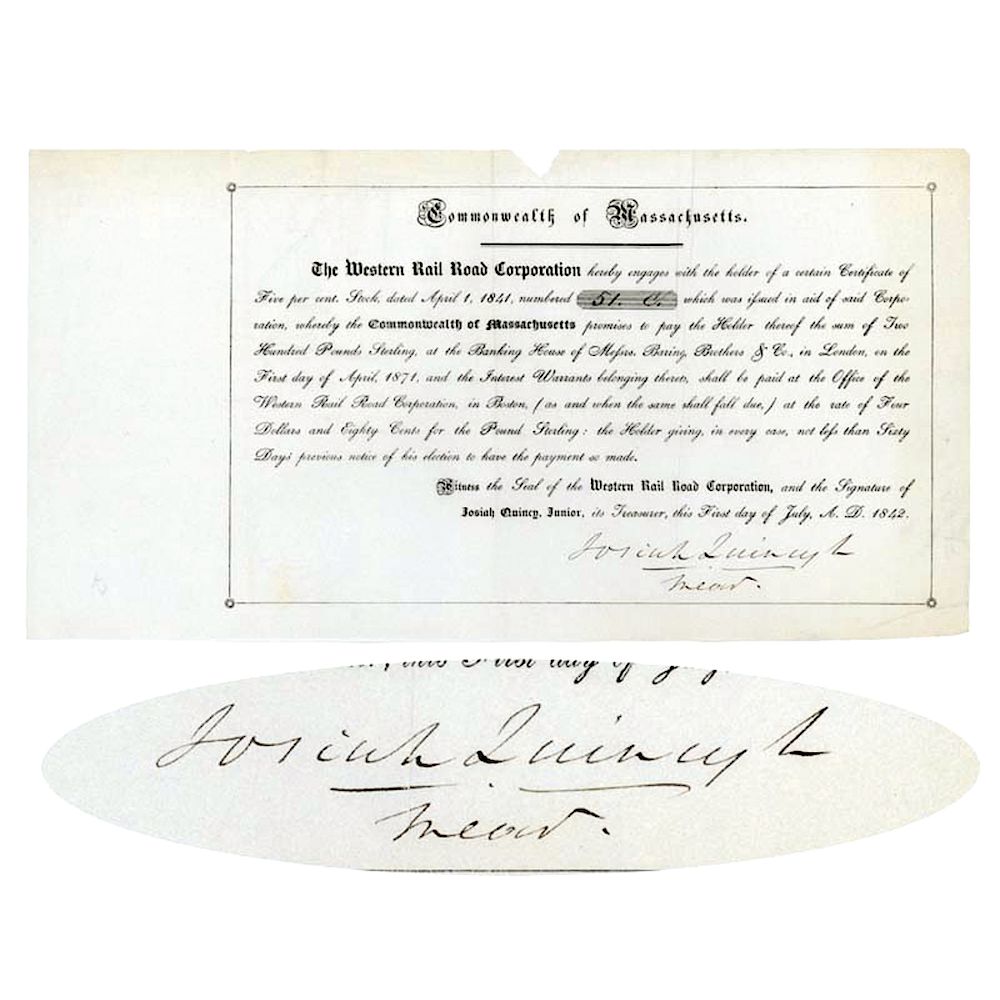 Commonwealth of Massachusetts.
The Western Rail Road Corporation hereby engages with the holder of a certain Certificate of
Five per cent. Stock, dated April 1, 1841, numbered 51. C. which was ifsued in aid of said Corpo-
ration, whereby the Commonwealth of Massachusetts promises to pay the Holder thereof the sum of Two
Hundred Pounds Sterling, at the Banking House of Mefsrs. Baring, Brothers & Co., in London, on the
First day of April, 1871, and the Interest Warrants belonging thereto, shall be paid at the Office of the
Western Rail Road Corporation, in Boston, (as and when the same shall fall due,) at the rate of Four
Dollars and Eighty Cents for the Pound Sterling: the Holder giving, in every case, not lefs than Sixty
Days previous notice of his election to have the payment so made.
Witness the Seal of the Western Rail Road Corporation, and the Signature of
Josiah Quincy, Junior, its Treasurer, this First day of July, A. D. 1842.
Josiah Quincy Jr
this First day of
Josiah Quincy Jr